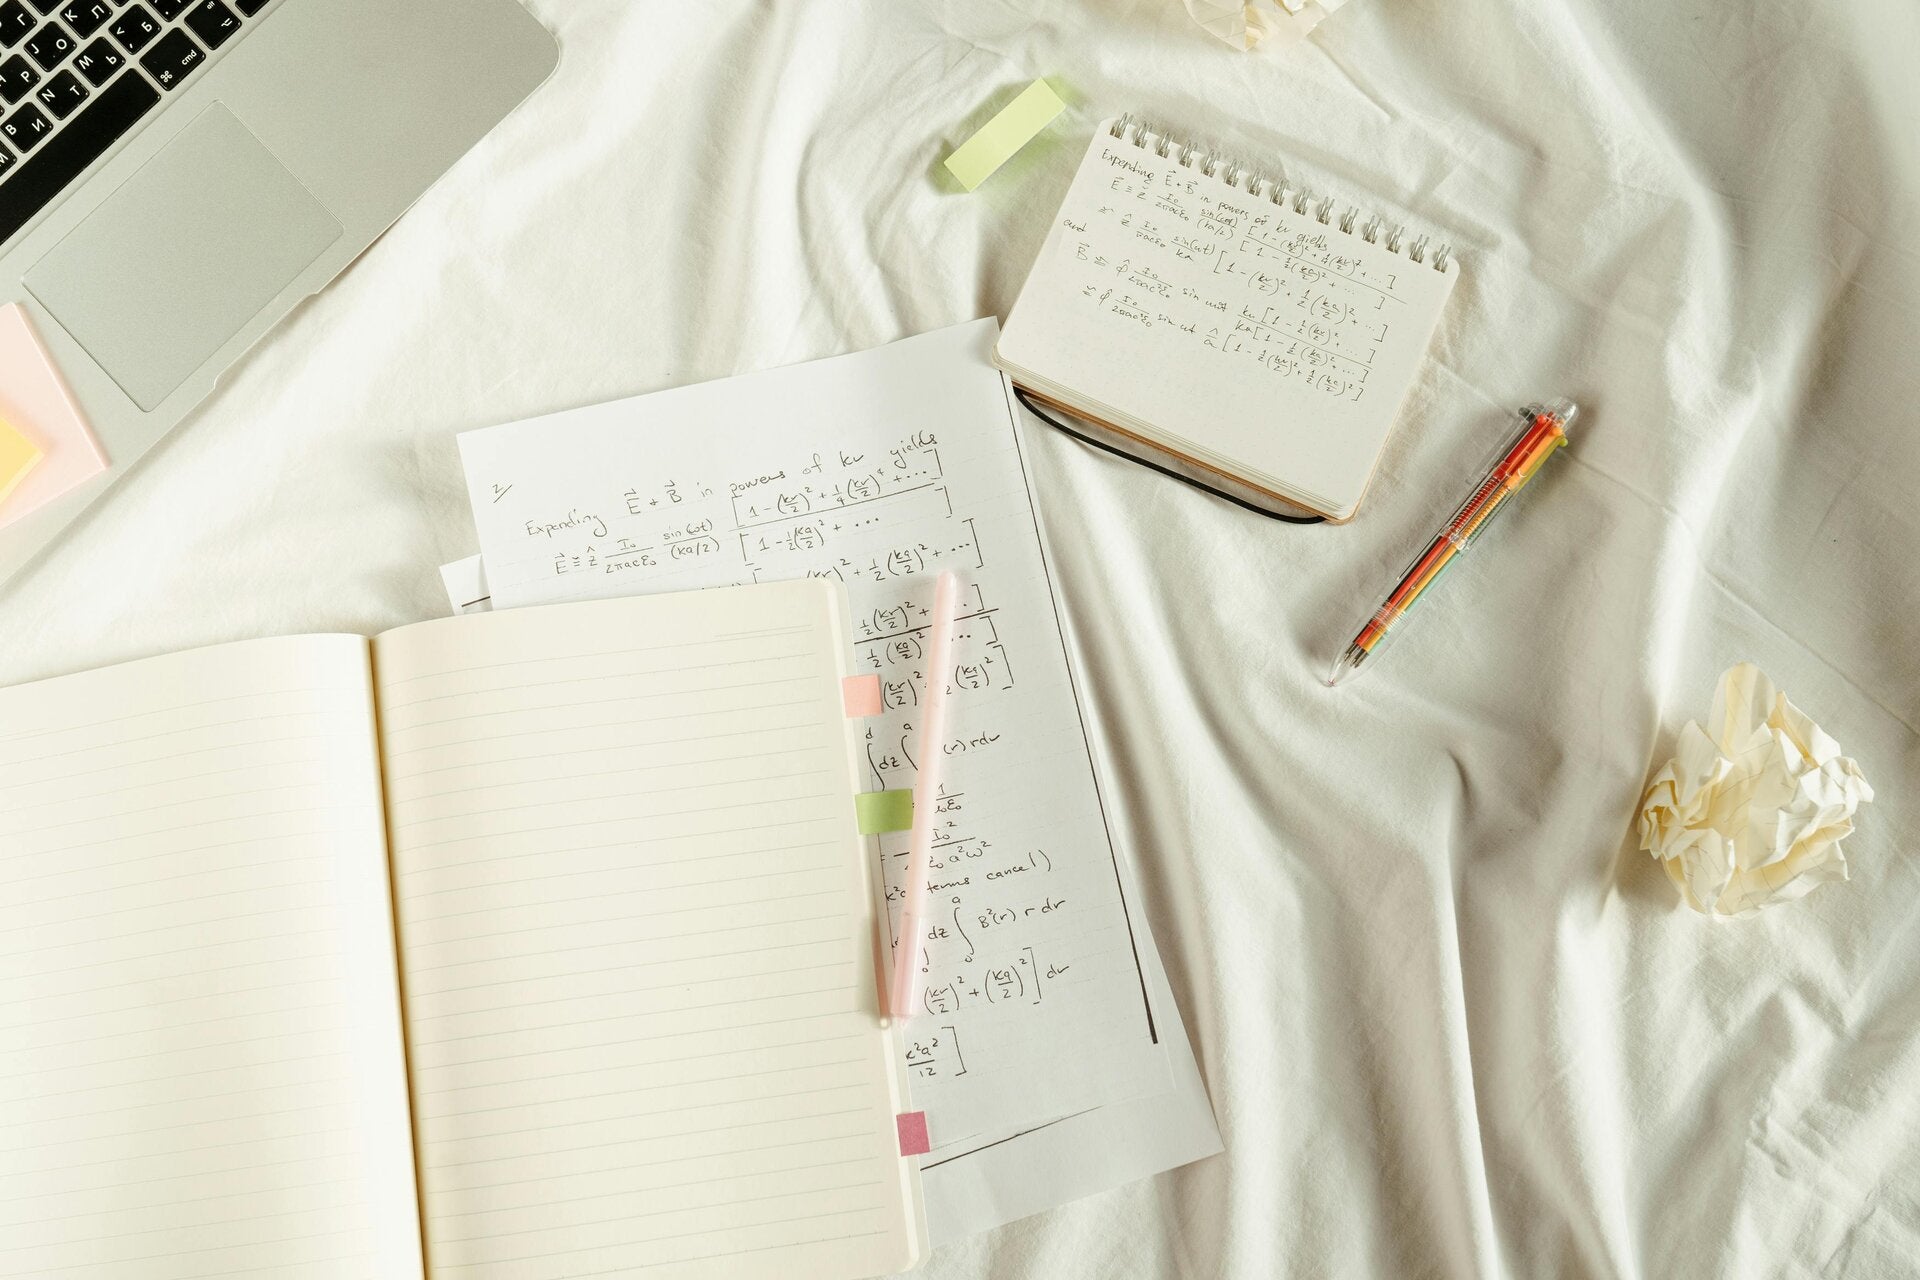 Г К Л
Ј О < , Б
Р Ь cmd
И Т М ⌘
В И
М
Expending E⃗ + B⃗ in powers of kr yields
E⃗ ≅ ẑ I₀/2πacε₀ sin(ωt)/(ka/2) [1 - (kr/2)² + 1/4(kr/2)⁴ + ...]
[1 - 1/2(ka/2)² + ...]
≅ ẑ I₀/πacε₀ sin(ωt)/ka [1 - (kr/2)² + 1/2(ka/2)² + ...]
and
B⃗ ≅ φ̂ I₀/2πac²ε₀ sin ωt kr[1 - 1/2(kr/2)² + ...]
ka[1 - 1/2(ka/2)² + ...]
≅ φ̂ I₀/2πac²ε₀ sin ωt r/a [1 - 1/2(kr/2)² + 1/2(ka/2)²]
2/
Expending E⃗ + B⃗ in powers of kr yields
E⃗ ≅ ẑ I₀/2πacε₀ sin(ωt)/(ka/2) [1 - (kr/2)² + 1/4(kr/2)⁴ + ...]
[1 - 1/2(ka/2)² + ...]
(kr/2)² + 1/2(ka/2)² + ...]
1/2(kr/2)² + ...]
1/2(ka/2)² ...]
(kr/2)² 2(ka/2)²]
∫ᵈ dz ∫ᵃ (r) r dr
1/ε₀
I₀²/ε₀a²ω²
terms cancel)
dz ∫₀ᵃ B²(r) r dr
(kr/2)² + (ka/2)²] dr
k²a²/12]